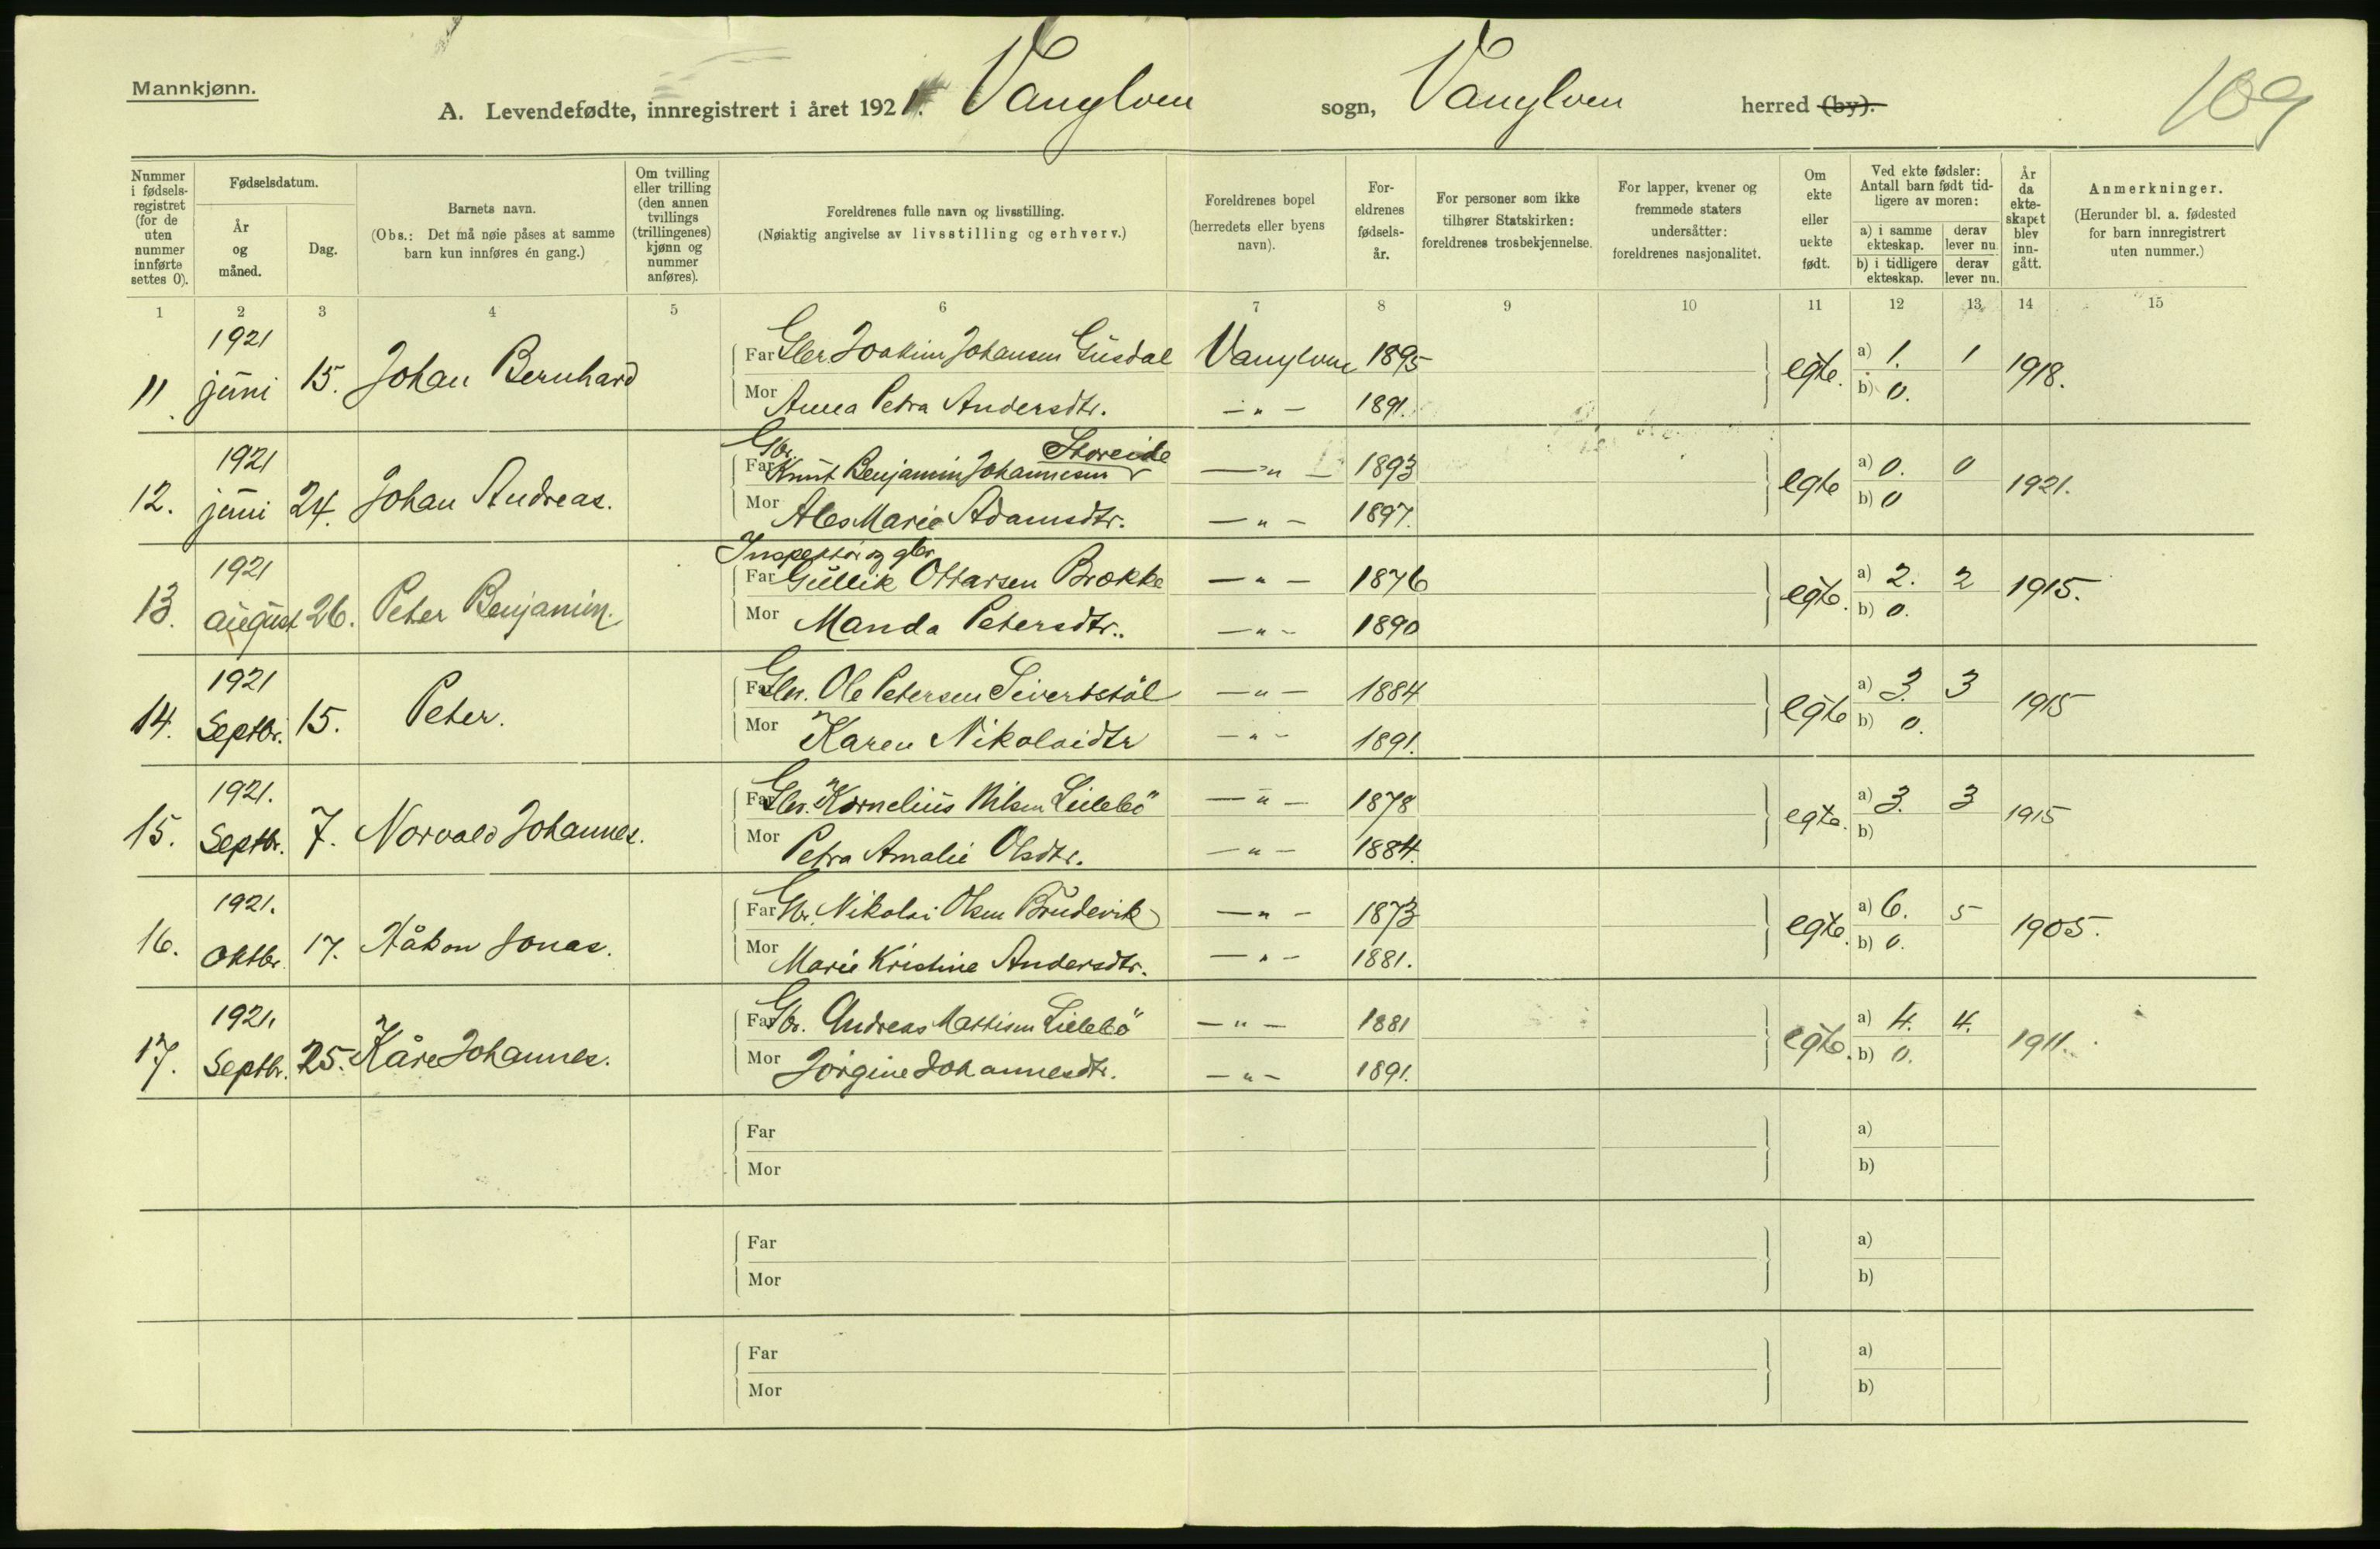 Mannkjønn.
A. Levendefødte, innregistrert i året 1921. Vanylven sogn, Vanylven herred (by).
109
Nummer i fødselsregistret (for de uten nummer innførte settes 0).
Fødselsdatum.
År og måned.
Dag.
Barnets navn.
(Obs.: Det må nøie påses at samme barn kun innføres én gang.)
Om tvilling eller trilling (den annen tvillings (trillingenes) kjønn og nummer anføres).
Foreldrenes fulle navn og livsstilling.
(Nøiaktig angivelse av livsstilling og erhverv.)
Foreldrenes bopel (herredets eller byens navn).
Foreldrenes fødselsår.
For personer som ikke tilhører Statskirken: foreldrenes trosbekjennelse.
For lapper, kvener og fremmede staters undersåtter: foreldrenes nasjonalitet.
Om ekte eller uekte født.
Ved ekte fødsler: Antall barn født tidligere av moren:
a) i samme ekteskap. derav lever nu.
b) i tidligere ekteskap. derav lever nu.
År da ekteskapet blev inngått.
Anmerkninger.
(Herunder bl. a. fødested for barn innregistrert uten nummer.)
1 2 3 4 5 6 7 8 9 10 11 12 13 14 15
11 1921 juni 15. Johan Bernhard Far Gbr Joakim Johansen Gusdal Vanylven 1895 egte. a) 1. 1 1918.
Mor Anna Petra Andersdtr. — " — 1891. b) 0.
12. 1921 juni 24. Johan Andreas. Gbr. Storeide
Far Knut Benjamin Johannesen — " — 1893 egte a) 0. 0 1921.
Mor Marie Adamsdtr. — " — 1897. b) 0
13. 1921 august 26. Peter Benjamin. Inspektör og gbr
Far Gullik Ottarsen Brokke — " — 1876 egte. a) 2. 2 1915.
Mor Manda Petersdtr. — " — 1890 b) 0.
14. 1921 Septbr. 15. Peter. Far Gbr. Ole Petersen Sivertstöl — " — 1884 egte a) 3. 3 1915
Mor Karen Nikolaidtr — " — 1891. b) 0.
15. 1921. Septbr. 7. Norvald Johannes. Far Gbr. Kornelius Nilsen Lillebö — " — 1878 egte. a) 3. 3 1915
Mor Petra Amalie Olsdtr. — " — 1884. b)
16. 1921. Oktbr. 17. Håkon Jonas. Far Gbr. Nikolai Olsen Brudevik — " — 1873 egte. a) 6. 5 1905.
Mor Marie Kristine Andersdtr. — " — 1881. b) 0.
17. 1921. Septbr. 25. Kåre Johannes. Far Gbr. Andreas Mattisen Lillebö — " — 1881 egte. a) 4. 4. 1911.
Mor Jörgine Johannesdtr. — " — 1891. b) 0.
Far a)
Mor b)
Far a)
Mor b)
Far a)
Mor b)